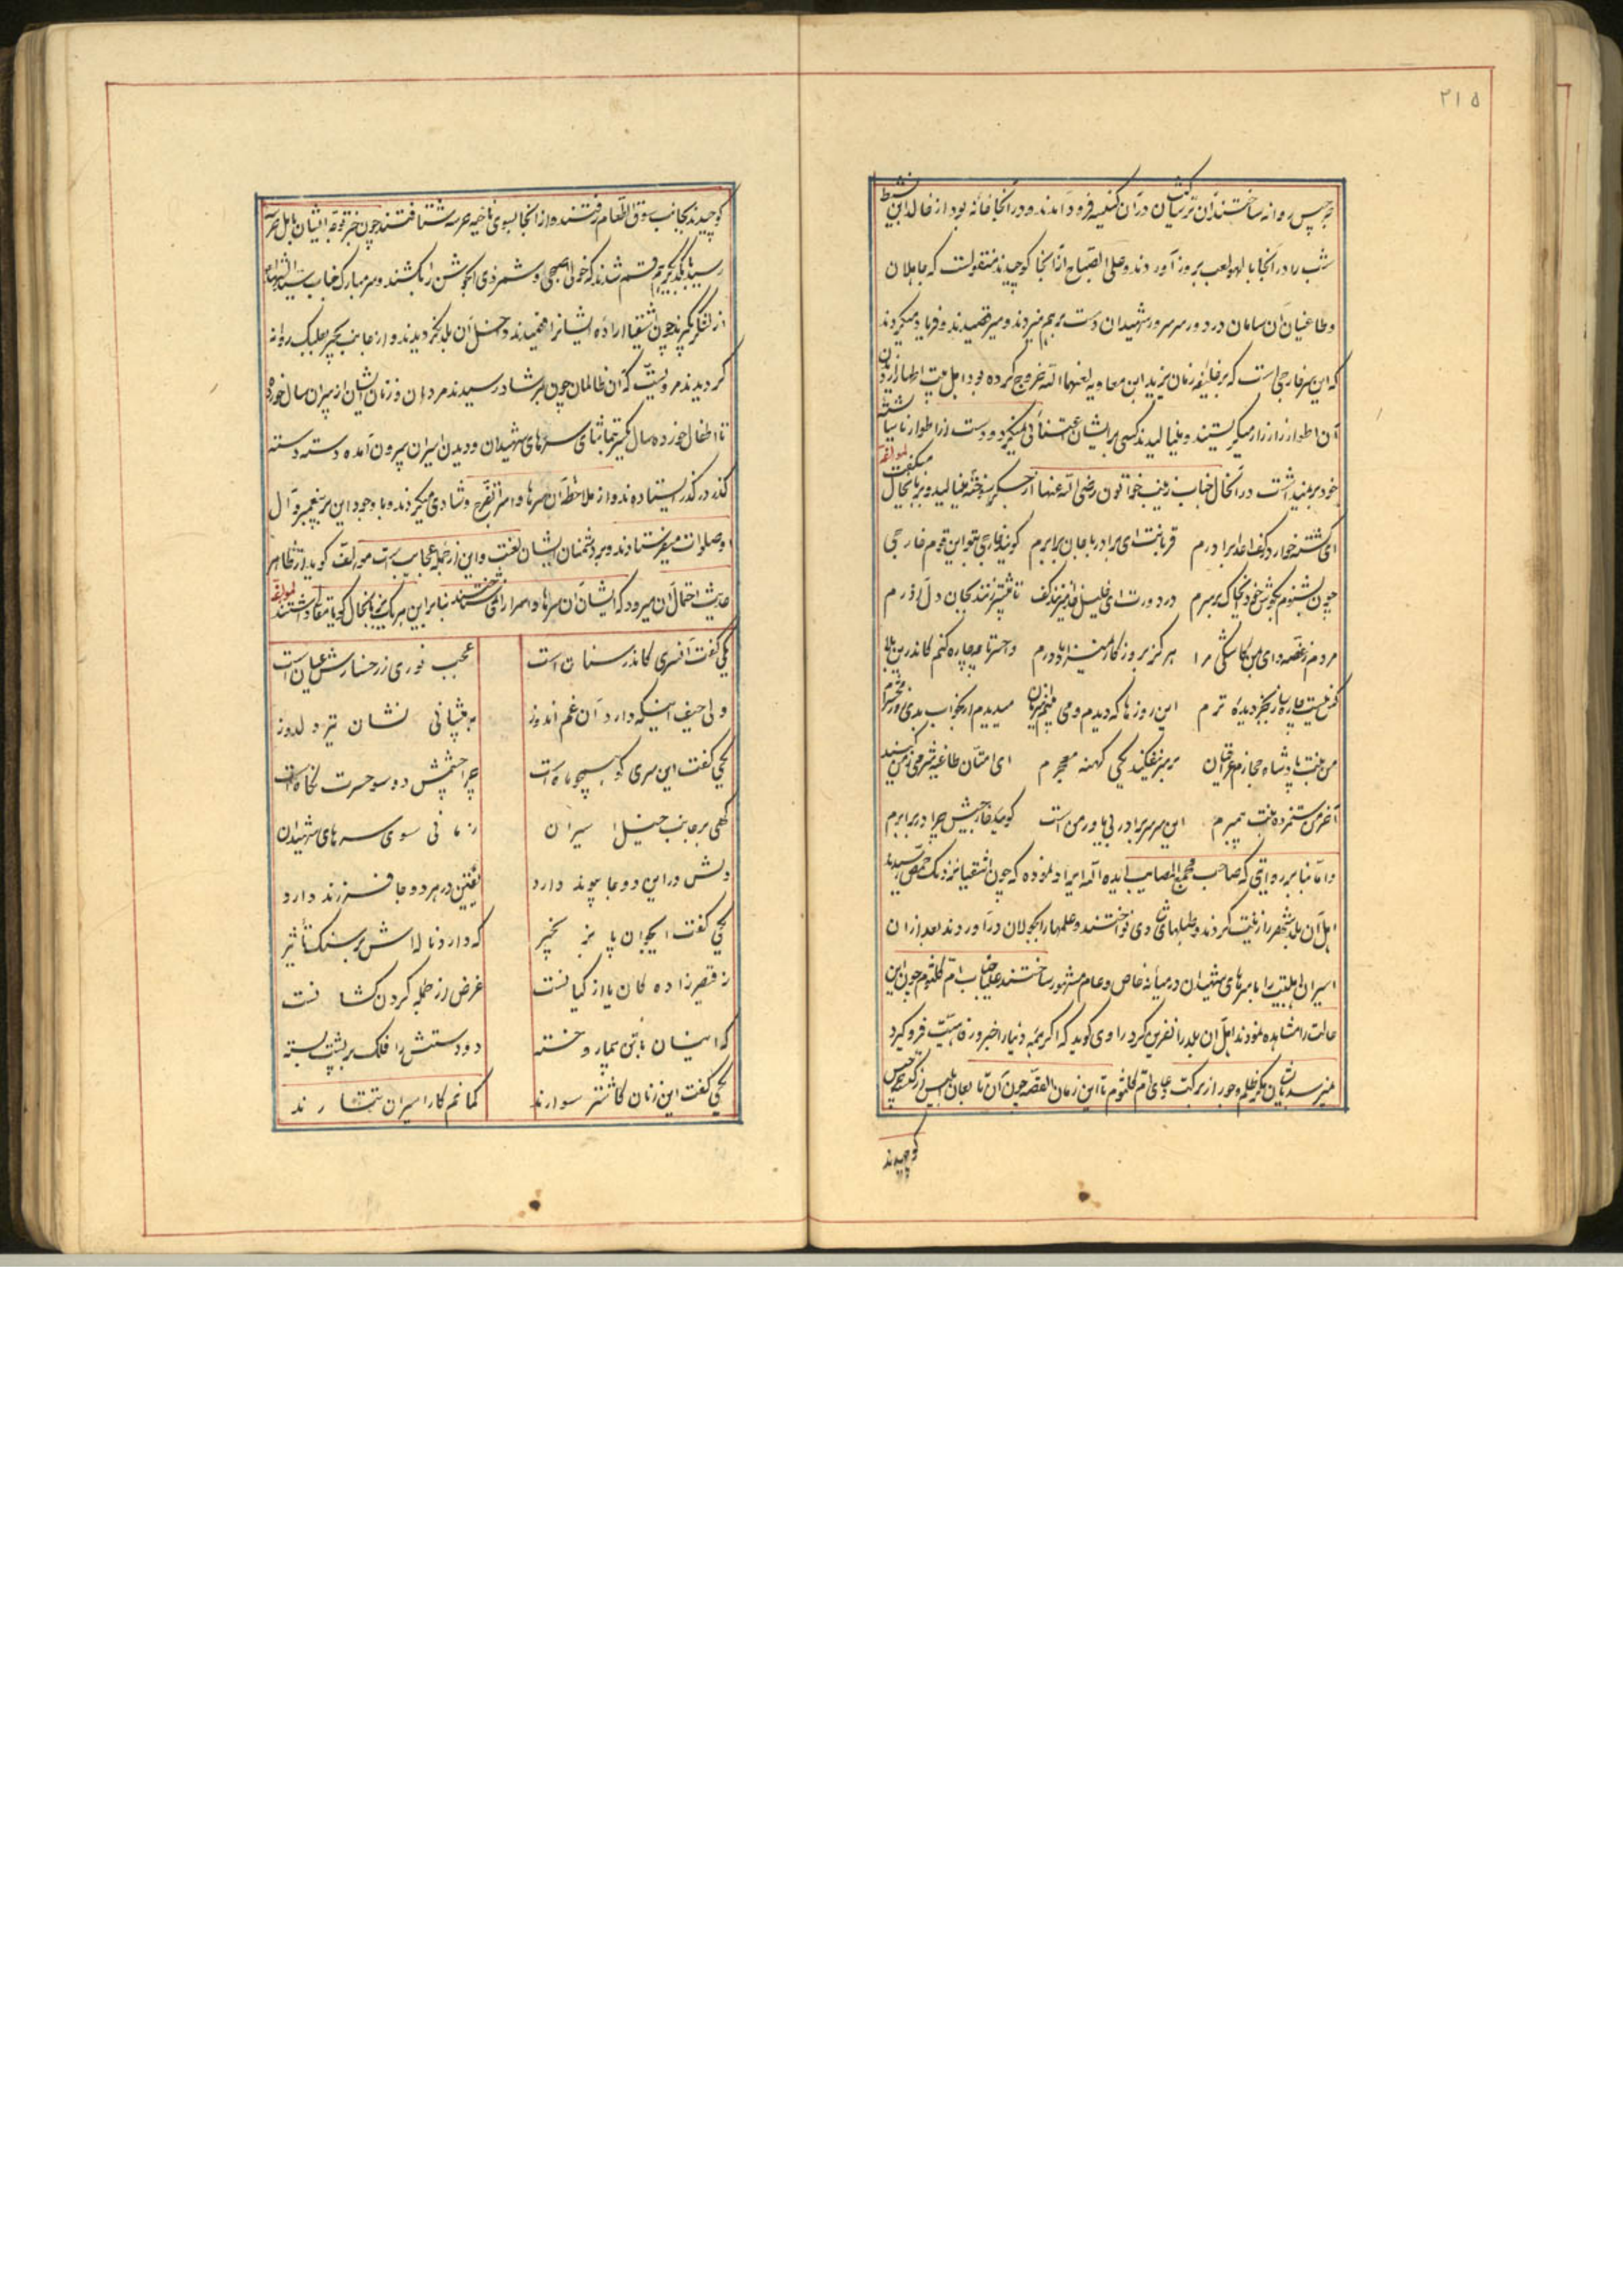 ۲۱۵
روانه ساختند آن ترسایان در آن کنیسه فرود آمدند و در آنجا خانه بود از خالد ابن نشیط
شب را در آنجا با لهو لعب بروز آوردند و علی الصباح از آنجا کوچیدند منقولست که جاهلان
و طاغیان آن سامان در دور سر سرور شهیدان دست بر هم میزدند و میرقصیدند و فریاد میکردند
که این سر خارجی است که بر خلیفه زمان یزید ابن معاویه لعنهما الله خروج کرده بود اهل بیت اطهار از دیدن
آن اطوار زار زار میگریستند و مینالیدند کسی بر ایشان اعتنائی نمیکرد و دست از اطوار ناشایسته
خود برنمیداشت در آنحال جناب زینب خواتون رضی الله عنها از جگر سوخته مینالید و بزبانحال میگفت لمؤلفه
ای کشته خوار در کف اعدا برادرم قربانت ای برادر با جان برابرم گویند خارجی بتو این قوم خارجی
چون بشنوم بگوش خود خاک بر سرم در دورت ای خلیل خدا میزنند کف تا آتش زنند بجان و دل آذرم
مردم ز غصه وای من کاشکی مرا هرگز بروزگار نمیزاد مادرم وا حسرتا چه چاره کنم کاندرین بلا
کس نیست چاره ساز بجز دیده ترم این روزها که دیدم و می بینم این زمان میدیدم ار بخواب بدی روز محشرم
من بنت پادشاه حجازم عراقیان بر سر نیفکنید یکی کهنه معجرم ای امتان طاغیه شرمی ز من کنید
آخر من ستمزده بنت پیمبرم این سر سر برادر بی یاور من است گویید خارجیش چرا در برابرم
و اما بنا بر روایتی که صاحب مجمع المصایب ایده الله ایراد نموده که چون اشقیا نزدیک حمص رسیدند
اهل آن بلد شهر را زینت کردند و طبلهای شادی نواختند و علمها را بجولان در آوردند بعد از آن
اسیران اهلبیت را با سرهای شهیدان در میانه خاص و عام مشهور ساختند علیاجناب ام کلثوم چون این
حالت را مشاهده نمودند اهل آن بلد را نفرین کرد راوی گوید که اگر همه دنیا را خیر و رفاهیت فرو گیرد
نمیرسد بایشان مگر ظلم و جور از برکت دعای ام کلثوم تا این زمان القصه چون آن تابعان ابلیس از
کوچیدند
کوچیدند بجانب سوق الطعام رفتند و از آنجا بسوی ناحیه عرسه شتافتند چون خبر توجه ایشان باهل
رسید با یکدیگر هم قسم شدند که خولی اصبحی و شمر ذی الجوشن را بکشند و سر مبارک جناب سید الشهدا
از لشکر گیرند چون اشقیا اراده ایشانرا فهمیدند داخل آن بلد نگردیدند و از جانب بعلبک روانه
گردیدند مرویست که آن ظالمان چون بر شادر رسیدند مردان و زنان ایشان از پیران سال خورده
تا اطفال خورده سال بتماشای سرهای شهیدان و دیدن اسیران بیرون آمده دسته دسته
گذر در گذر ایستاده بودند و از ملاحظه آن سرها و اسرا تفرج و شادی میکردند و با وجود این بر پیغمبر و آل
او صلوات میفرستادند و بر دشمنان ایشان لعنت و این از جمله عجایب است مؤلف گوید از ظاهر
حدیث احتمال آن میرود که ایشان آن سرها و اسرا را نمی شناختند بنابراین هر یک بزبانحال گویا مقالی داشتند لمؤلفه
یکی گفت آن سری کاندر سنان است عجب نوری ز رخسارش عیان است
ولی حیف اینکه دارد آن غم اندوز به پیشانی نشان تیر دلدوز
یکی گفت این سری کو همچو ماه است چرا چشمش دو سو حسرت نگاه است
گهی بر جانب خیل اسیران زمانی سوی سرهای شهیدان
دلش در این دو جا پیوند دارد یقین در هر دو جا فرزند دارد
یکی گفت ایجوان پا بزنجیر که دارد ناله اش بر سنگ تأثیر
ز قیصرزاده کان یا از کیانست غرض از جمله گردن کشانست
که اینسان با تن بیمار و خسته دو دستش را فلک بر پشت بسته
یکی گفت این زنان کاشتر سوارند گمانم کار اسیران تتارند